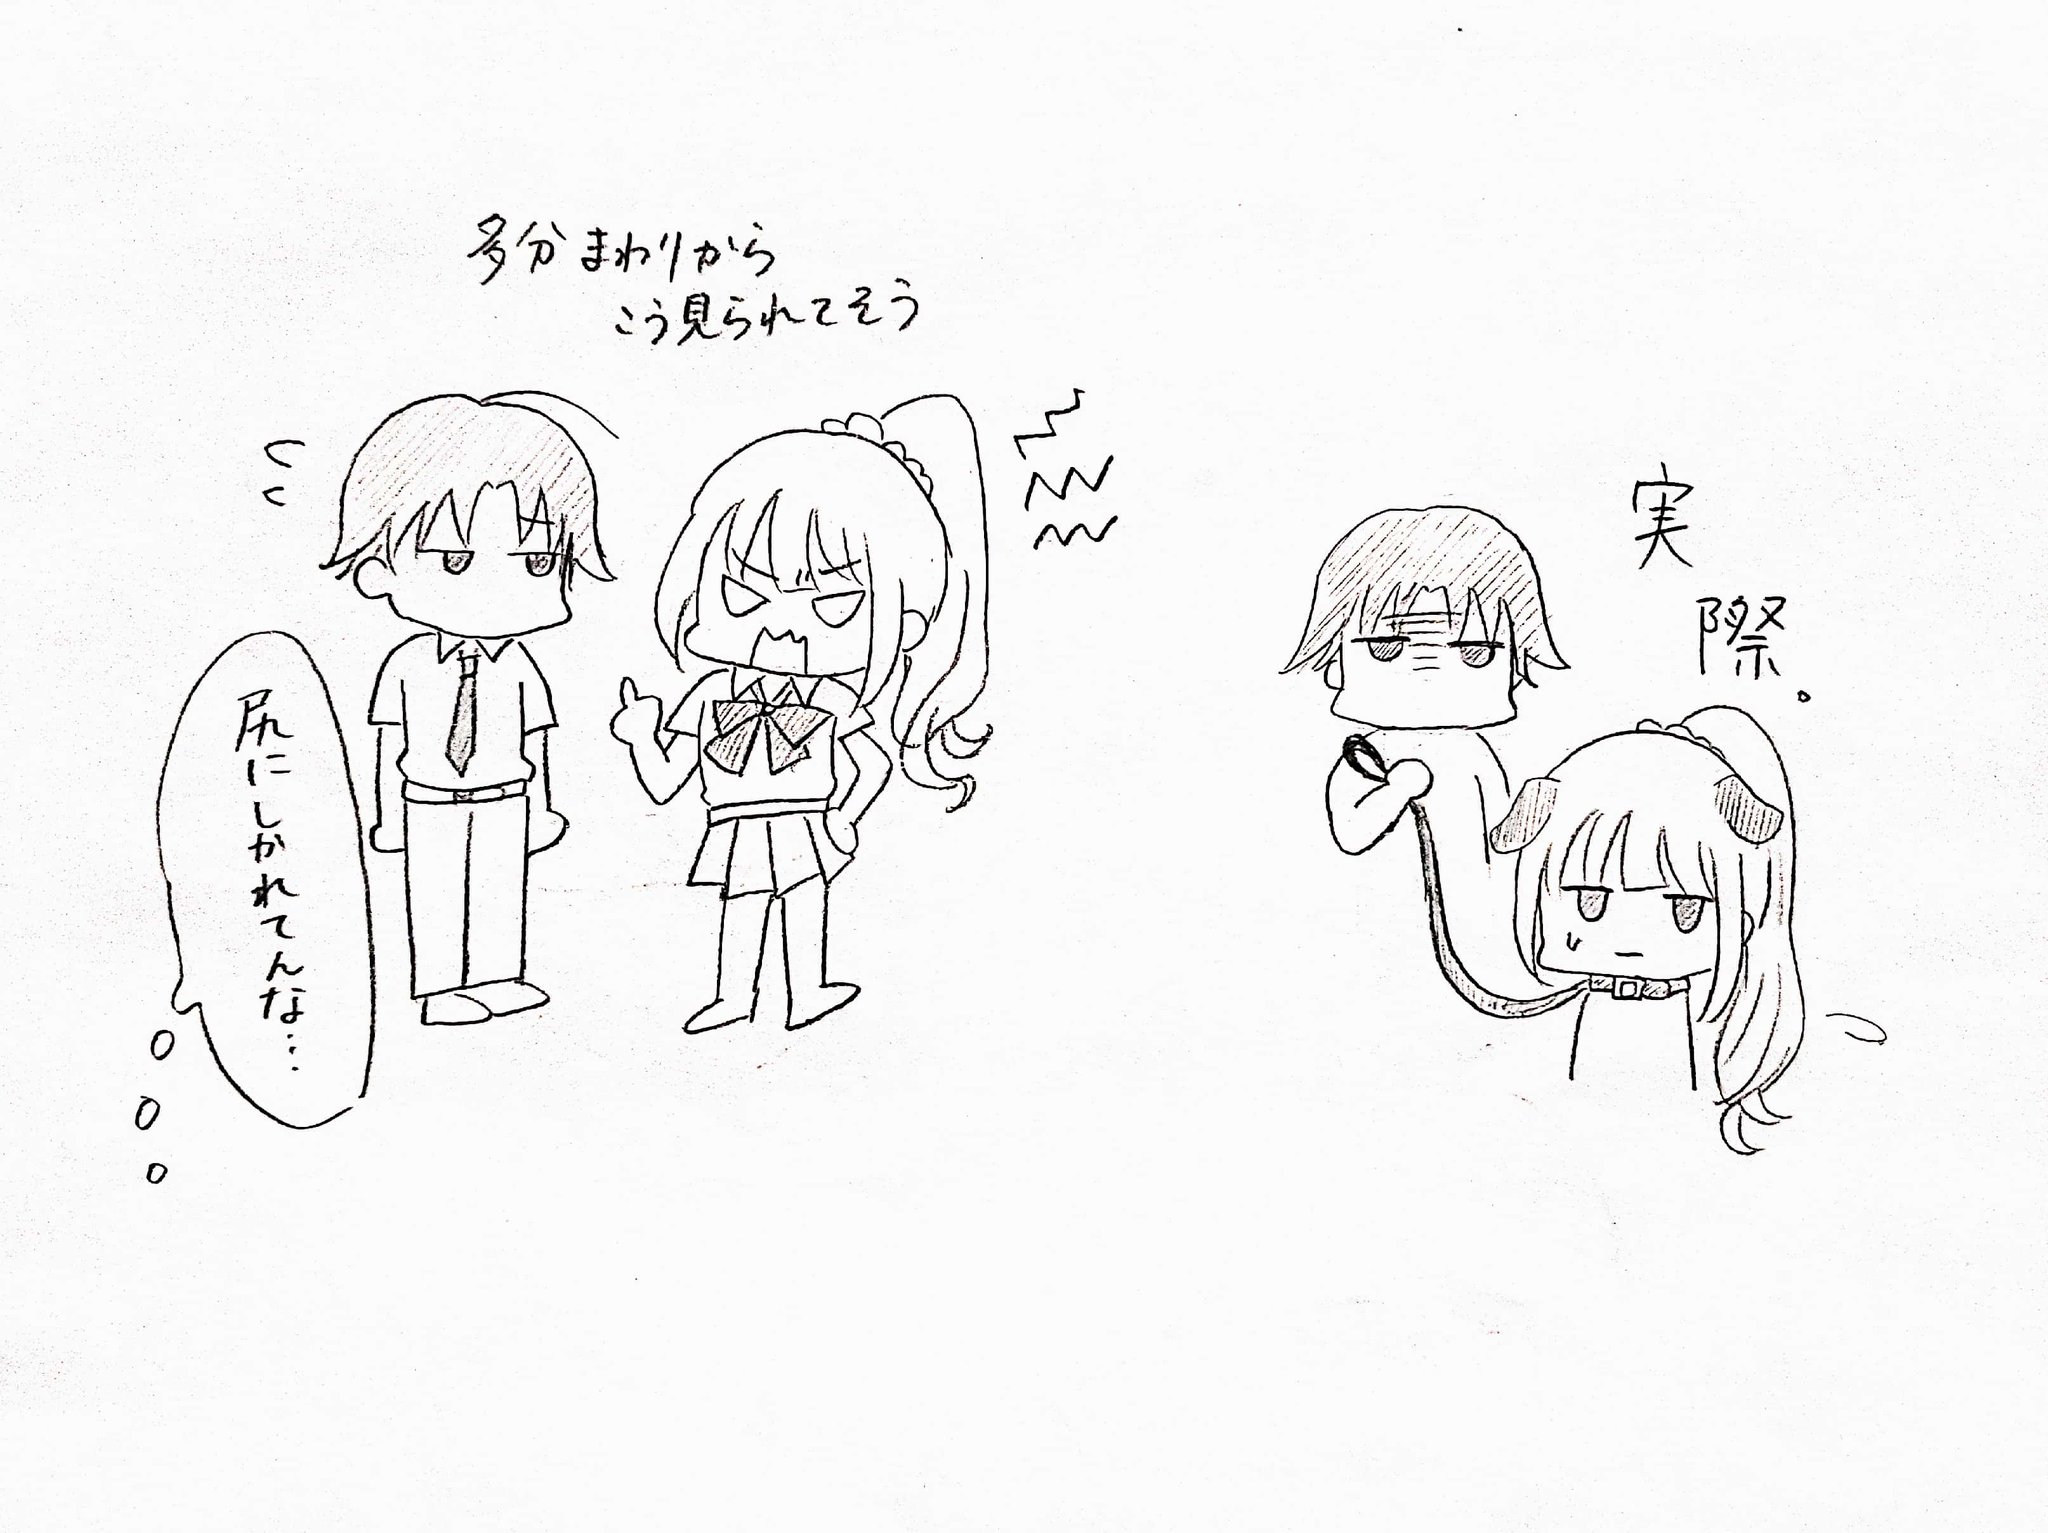 多分まわりから
こう見られてそう
尻にしかれてんな…
実際。